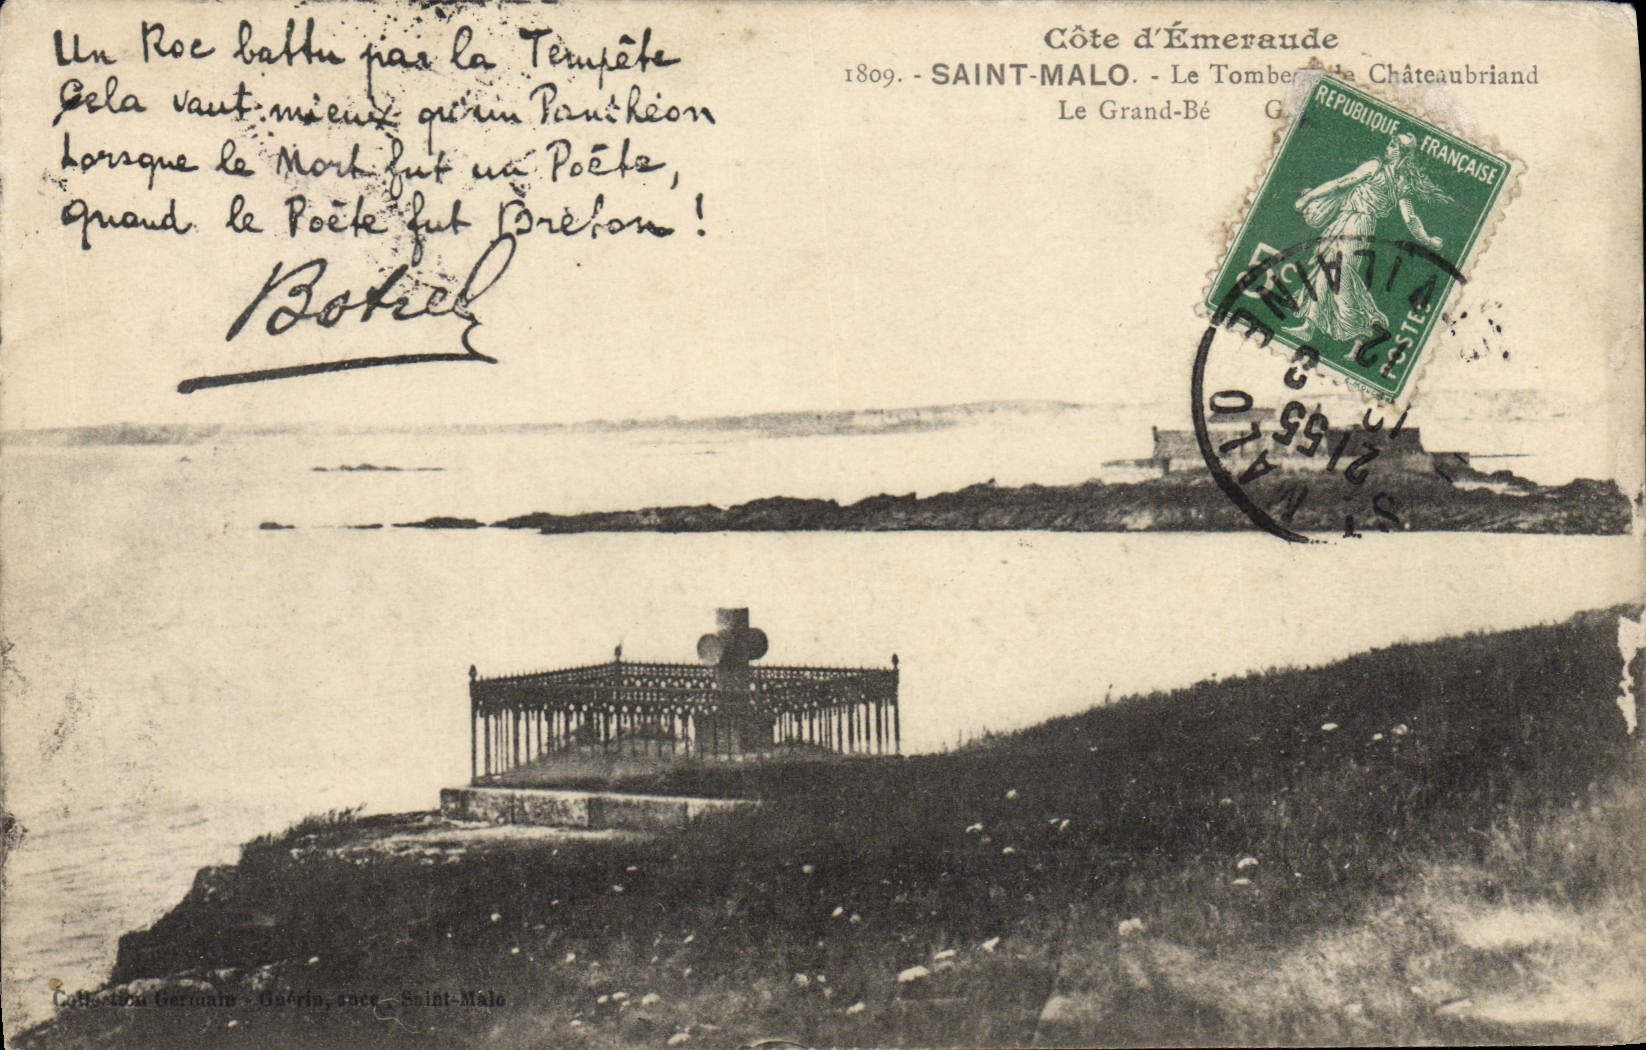 Un Roc battu par la Tempête
Cela vaut mieux qu'un Panthéon
Lorsque le Mort fut un Poète,
quand le Poète fut Breton !
Botrel
Côte d'Émeraude
1809. - SAINT-MALO. - Le Tombe de Châteaubriand
Le Grand-Bé G.
REPUBLIQUE FRANÇAISE
5c
POSTES
ST MALO
ILLE VILAINE
21 55
3 12
12
Collection Germain - Guérin, succ - Saint-Malo